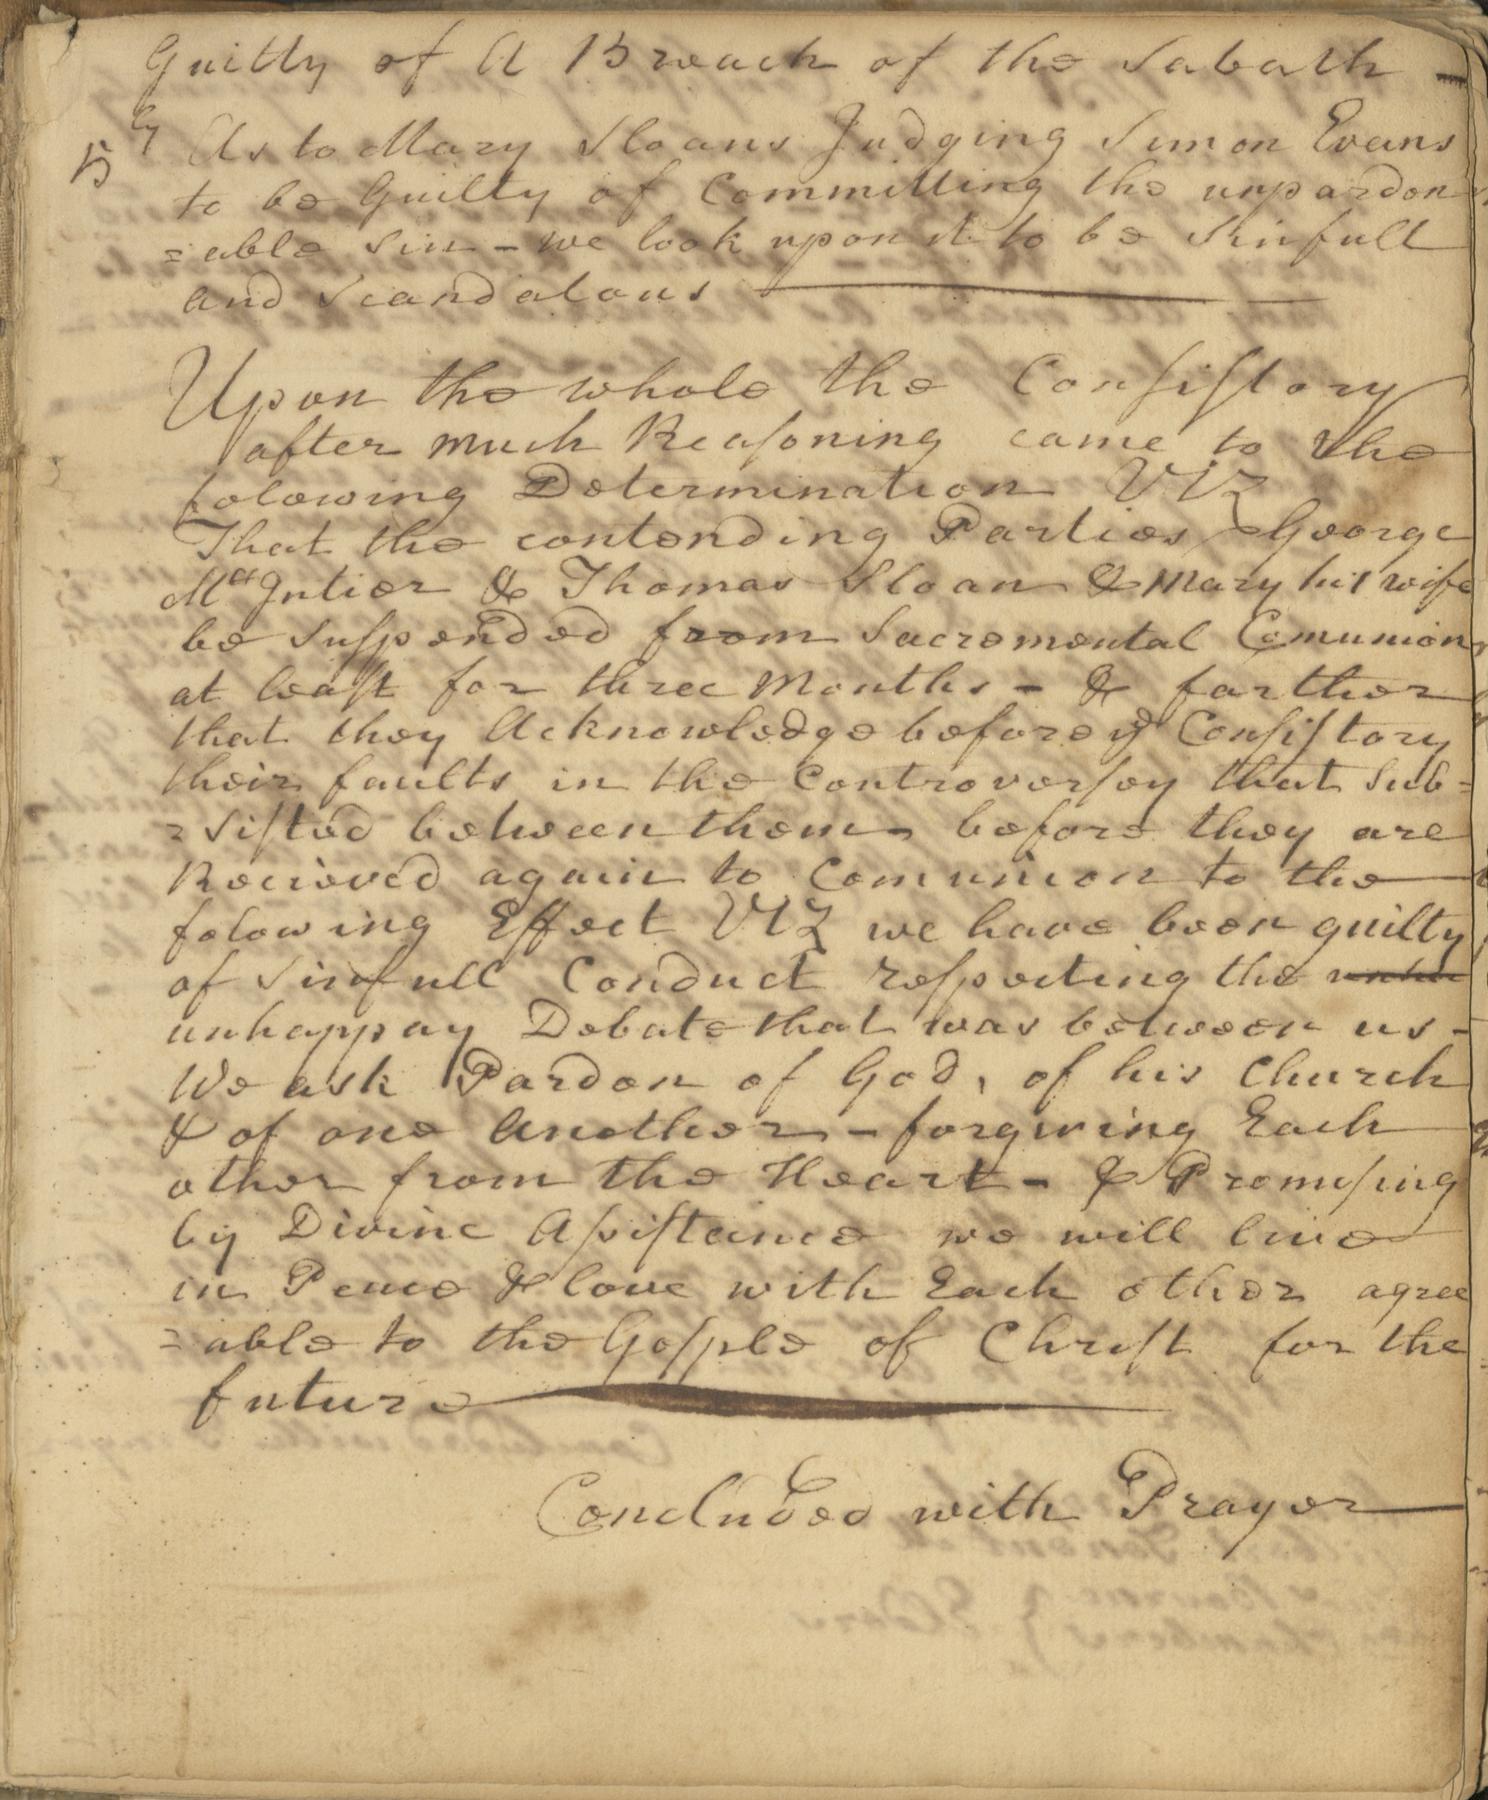 Guilty of A Breach of the Sabath -
5ly As to Mary Sloans Judging Simon Evans
to be Guilty of Committing the unpardon
=able Sin - we look upon it to be Sinfull
and Scandalous
Upon the whole the Consistory
after much Reasoning came to the
folowing Determination VIZ
That the contending Parties George
McIntier & Thomas Sloan & Mary his wife
be Suspended from Sacremental Comunion
at least for three Months - & farther
that they Acknowledge before ye Consistory
their faults in the Controversey that Sub=
=sisted between them before they are
Recieved again to Comunion to the
folowing Effect VIZ we have been guilty
of Sinfull Conduct respecting the
unhappay Debate that was between us -
We ask Pardon of God, of his Church
& of one Another - forgiving Each
other from the Heart - & Promising
by Divine Assistance we will live
in Peace & love with Each other agree
=able to the Gosple of Christ for the
future
Concluded with Prayer